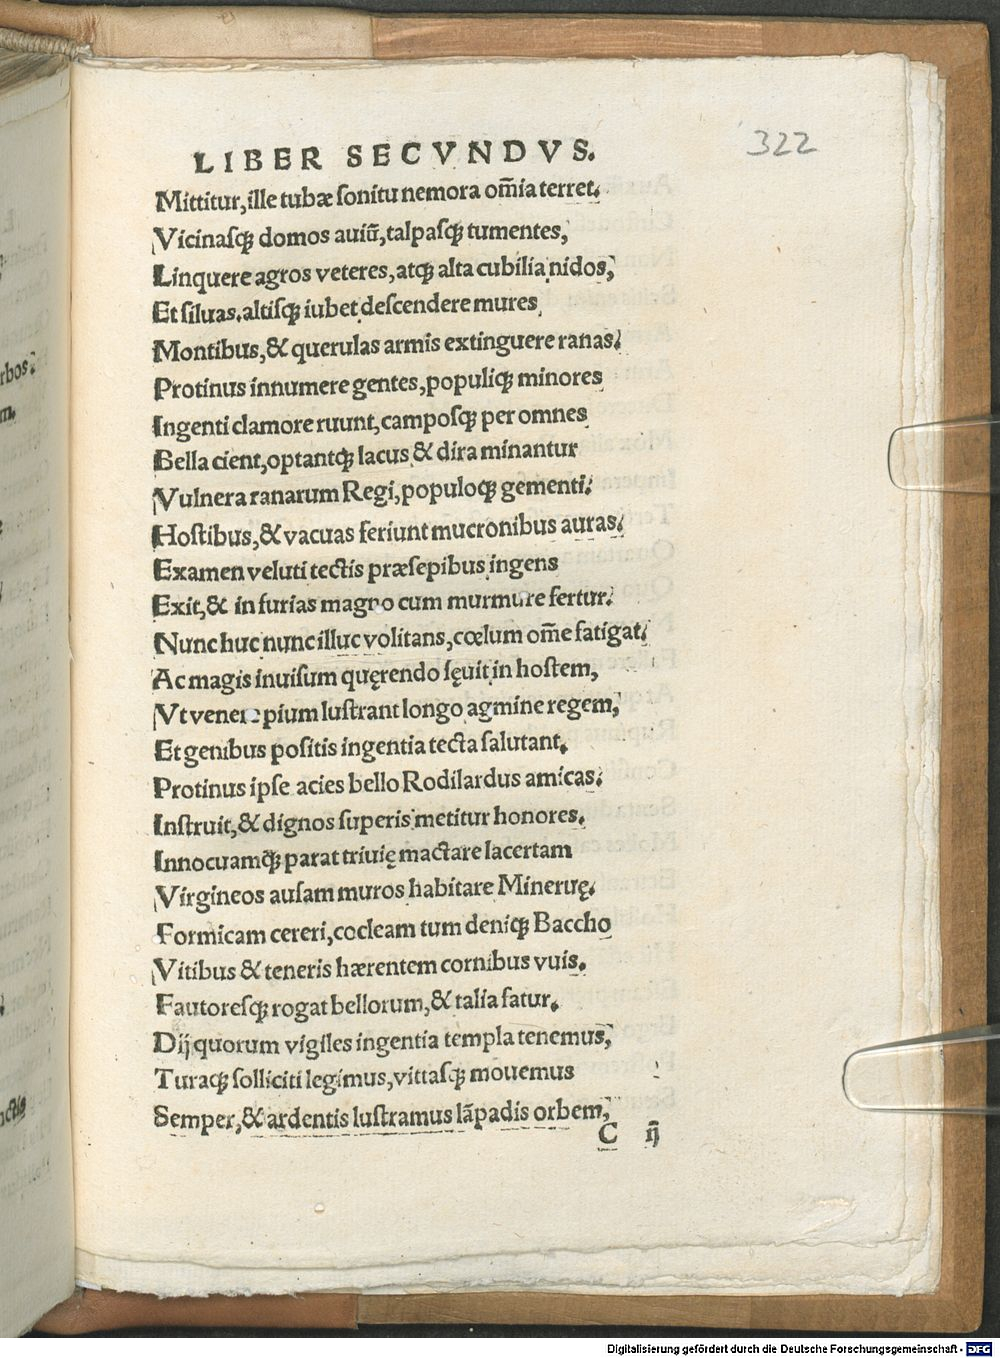 322
LIBER SECVNDVS.
Mittitur, ille tubæ ſonitu nemora om̄ia terret.
Vicinaſqꝫ domos auiū, talpaſqꝫ tumentes,
Linquere agros veteres, atqꝫ alta cubilia nidos,
Et ſiluas. altiſqꝫ iubet deſcendere mures
Montibus, & querulas armis extinguere ranas.
Protinus innumere gentes, populiqꝫ minores
Ingenti clamore ruunt, campoſqꝫ per omnes
Bella cient, optantqꝫ lacus & dira minantur
Vulnera ranarum Regi, populoqꝫ gementi.
Hoſtibus, & vacuas feriunt mucronibus auras.
Examen veluti tectis præſepibus ingens
Exit, & in furias magno cum murmure fertur.
Nunc huc nunc illuc volitans, cœlum om̄e fatigat.
Ac magis inuiſum quęrendo ſęuit in hoſtem,
Vt venere pium luſtrant longo agmine regem,
Et genibus poſitis ingentia tecta ſalutant.
Protinus ipſe acies bello Rodilardus amicas.
Inſtruit, & dignos ſuperis metitur honores.
Innocuamqꝫ parat triuię mactare lacertam
Virgineos auſam muros habitare Mineruę.
Formicam cereri, cocleam tum deniqꝫ Baccho
Vitibus & teneris hærentem cornibus vuis.
Fautoreſqꝫ rogat bellorum, & talia fatur.
Dij quorum vigiles ingentia templa tenemus,
Turaqꝫ ſolliciti legimus, vittaſqꝫ mouemus
Semper, & ardentis luſtramus lāpadis orbem,
C ij
rbos.
m.
nctis
Digitalisierung gefördert durch die Deutsche Forschungsgemeinschaft - DFG